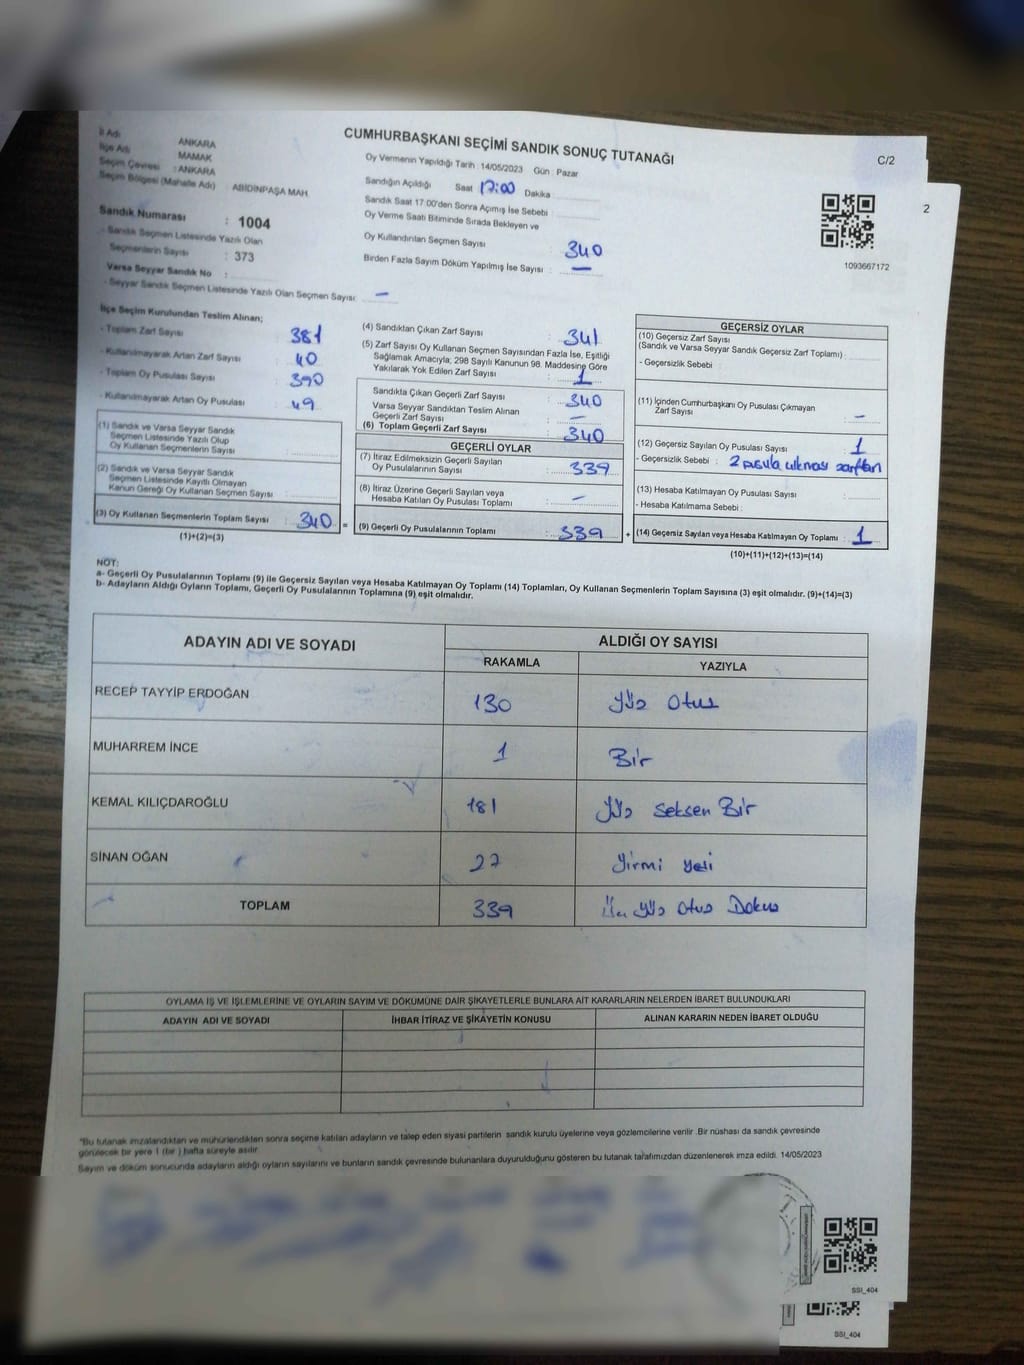 CUMHURBAŞKANI SEÇİMİ SANDIK SONUÇ TUTANAĞI
C/2
2
İl Adı ANKARA
İlçe Adı MAMAK
Seçim Çevresi : ANKARA
Seçim Bölgesi (Mahalle Adı) : ABİDİNPAŞA MAH.
Sandık Numarası : 1004
- Sandık Seçmen Listesinde Yazılı Olan
Seçmenlerin Sayısı : 373
Varsa Seyyar Sandık No :
- Seyyar Sandık Seçmen Listesinde Yazılı Olan Seçmen Sayısı : —
Oy Vermenin Yapıldığı Tarih : 14/05/2023 Gün : Pazar
Sandığın Açıldığı Saat 17:00 Dakika
Sandık Saat 17.00'den Sonra Açılmış İse Sebebi :
Oy Verme Saati Bitiminde Sırada Bekleyen ve
Oy Kullandırılan Seçmen Sayısı : 340
Birden Fazla Sayım Döküm Yapılmış İse Sayısı : —
1093667172
İlçe Seçim Kurulundan Teslim Alınan;
- Toplam Zarf Sayısı : 381
- Kullanılmayarak Artan Zarf Sayısı : 40
- Toplam Oy Pusulası Sayısı : 390
- Kullanılmayarak Artan Oy Pusulası : 49
(1) Sandık ve Varsa Seyyar Sandık
Seçmen Listesinde Yazılı Olup
Oy Kullanan Seçmenlerin Sayısı :
(2) Sandık ve Varsa Seyyar Sandık
Seçmen Listesinde Kayıtlı Olmayan
Kanun Gereği Oy Kullanan Seçmen Sayısı :
(3) Oy Kullanan Seçmenlerin Toplam Sayısı : 340
(1)+(2)=(3)
=
(4) Sandıktan Çıkan Zarf Sayısı : 341
(5) Zarf Sayısı Oy Kullanan Seçmen Sayısından Fazla İse, Eşitliği
Sağlamak Amacıyla; 298 Sayılı Kanunun 98. Maddesine Göre
Yakılarak Yok Edilen Zarf Sayısı : 1
Sandıkta Çıkan Geçerli Zarf Sayısı : 340
Varsa Seyyar Sandıktan Teslim Alınan
Geçerli Zarf Sayısı : —
(6) Toplam Geçerli Zarf Sayısı : 340
GEÇERLİ OYLAR
(7) İtiraz Edilmeksizin Geçerli Sayılan
Oy Pusulalarının Sayısı : 339
(8) İtiraz Üzerine Geçerli Sayılan veya
Hesaba Katılan Oy Pusulası Toplamı : —
(9) Geçerli Oy Pusulalarının Toplamı : 339
+
GEÇERSİZ OYLAR
(10) Geçersiz Zarf Sayısı
(Sandık ve Varsa Seyyar Sandık Geçersiz Zarf Toplamı) :
- Geçersizlik Sebebi :
(11) İçinden Cumhurbaşkanı Oy Pusulası Çıkmayan
Zarf Sayısı : —
(12) Geçersiz Sayılan Oy Pusulası Sayısı : 1
- Geçersizlik Sebebi : 2 pusula çıkması zarftan
(13) Hesaba Katılmayan Oy Pusulası Sayısı :
- Hesaba Katılmama Sebebi :
(14) Geçersiz Sayılan veya Hesaba Katılmayan Oy Toplamı : 1
(10)+(11)+(12)+(13)=(14)
NOT:
a- Geçerli Oy Pusulalarının Toplamı (9) ile Geçersiz Sayılan veya Hesaba Katılmayan Oy Toplamı (14) Toplamları, Oy Kullanan Seçmenlerin Toplam Sayısına (3) eşit olmalıdır. (9)+(14)=(3)
b- Adayların Aldığı Oyların Toplamı, Geçerli Oy Pusulalarının Toplamına (9) eşit olmalıdır.
ADAYIN ADI VE SOYADI ALDIĞI OY SAYISI
RAKAMLA YAZIYLA
RECEP TAYYİP ERDOĞAN 130 Yüz Otuz
MUHARREM İNCE 1 Bir
KEMAL KILIÇDAROĞLU 181 Yüz Seksen Bir
SİNAN OĞAN 27 Yirmi Yedi
TOPLAM 339 Üç Yüz Otuz Dokuz
OYLAMA İŞ VE İŞLEMLERİNE VE OYLARIN SAYIM VE DÖKÜMÜNE DAİR ŞİKAYETLERLE BUNLARA AİT KARARLARIN NELERDEN İBARET BULUNDUKLARI
ADAYIN ADI VE SOYADI İHBAR İTİRAZ VE ŞİKAYETİN KONUSU ALINAN KARARIN NEDEN İBARET OLDUĞU
"Bu tutanak imzalandıktan ve mühürlendikten sonra seçime katılan adayların ve talep eden siyasi partilerin sandık kurulu üyelerine veya gözlemcilerine verilir .Bir nüshası da sandık çevresinde
görülecek bir yere 1 (bir ) hafta süreyle asılır.
Sayım ve döküm sonucunda adayların aldığı oyların sayılarını ve bunların sandık çevresinde bulunanlara duyurulduğunu gösteren bu tutanak tarafımızdan düzenlenerek imza edildi. 14/05/2023
SSI_404
SSI_404